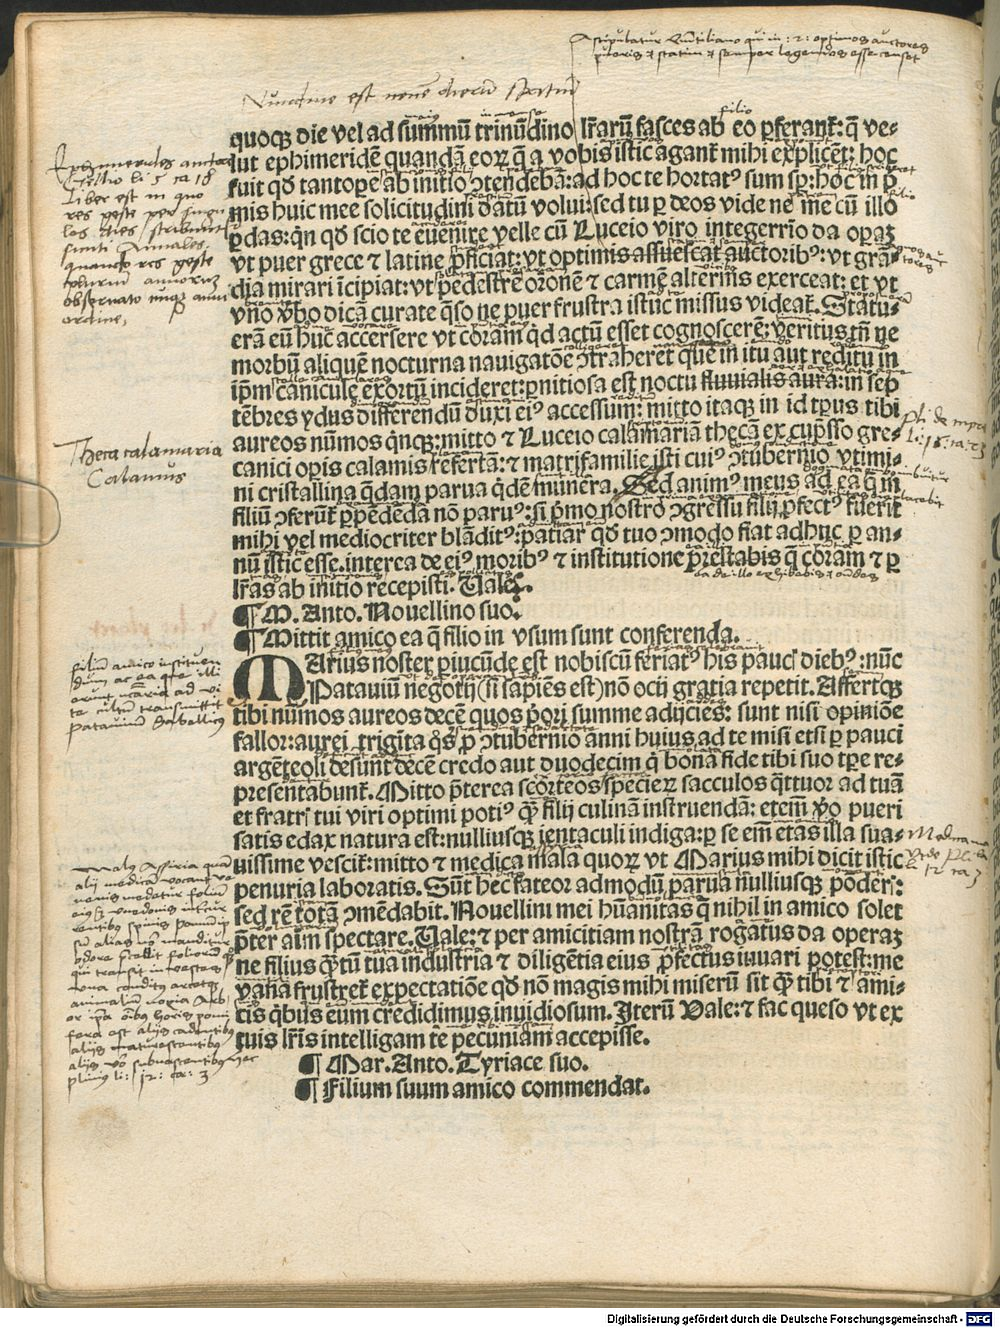 Astipulatur Quintiliano qui in : 2 : optimos auctores
et statim et semper legendos esse censet
Nundine est none dierum
quoqꝫ die vel ad summū trinūdino lr̄arū fasces ab eo ꝑferant᷑: q̄ ve-
lut ephimeridē quandā eorꝫ q̄ a vobis istic agant᷑ mihi explicēt: hoc
fuit qd̄ tantope ab initio ↄtendebā: ad hoc te hortatꝰ sum sp̄: hoc in p̄
mis huic mee solicitudini datū volui: sed tu ꝑ deos vide ne me cū illo
ꝑdas: qn̄ qd̄ scio te euenire velle cū Luceio viro integerrio da operaꝫ
vt puer grece ⁊ latine ꝓficiat: vt optimis assuescat auctoribꝰ: vt grā-
dia mirari īcipiat: vt pedestrē or̄onē ⁊ carmē alternis exerceat: et vt
vno v̄bo dicā curate q̄so ne puer frustra istuc missus videat᷑. Statu-
erā eū huc accersere vt corām qd̄ actū esset cognoscerē: veritus tn̄ ne
morbū aliquē nocturna nauigatōe ↄtraheret quē in itu aut reditu in
ip̄m canicule exortū incideret: ꝑnitiosa est noctu fluuialis aura: in sep
tēbres ydus differendū duxi eiꝰ accessum: mitto itaqꝫ in id tp̄us tibi
aureos nūmos qnqꝫ: mitto ⁊ Luceio calamariā thecā ex cup̄sso gre-
canici oꝑis calamis refertā: ⁊ matrifamilie isti cuiꝰ ↄtubernio vtimi-
ni cristallina qdam parua qdē munera. Sed animꝰ meus ad ea q̄ in
filiū ↄferūt᷑ ꝑpēdēda nō paruꝰ: si pͥmo nostro ↄgressu filij ꝓfectꝰ fuerit
mihi vel mediocriter blāditꝰ: patiar qd̄ tuo ↄmodo fiat adhuc ꝑ an-
nū istic esse. interea de eiꝰ moribꝰ ⁊ institutione p̄stabis q̄ coram ⁊ ꝑ
lr̄as ab initio recepisti. Vale.
¶ M. Anto. Nouellino suo.
¶ Mittit amico ea q̄ filio in vsum sunt conferenda.
MArius noster ꝑiucūde est nobiscū feriatꝰ his paucꝭ diebꝰ: nūc
Patauiū negotij (si sapiēs est) nō ocij gratia repetit. Affertqꝫ
tibi nūmos aureos decē quos pͥori summe adijcies: sunt nisi opiniōe
fallor: aurei trigīta qͦs ꝓ ↄtubernio anni huius ad te misi etsi ꝑ pauci
argēteoli desunt decē credo aut duodecim q̄ bona fide tibi suo tꝑe re-
presentabunt᷑. Mitto p̄terea scorteos specierꝫ sacculos q̄ttuor ad tuā
et fratrꝭ tui viri optimi potiꝰ qꝫ filij culinā instruendā: etem̄ v̄o pueri
satis edax natura est: nulliusqꝫ ientaculi indiga: ꝑ se em̄ etas illa sua-
uissime vescit᷑: mitto ⁊ medica mala quorꝫ vt Marius mihi dicit istic
penuria laboratis. Sūt hec fateor admodū parua nulliusqꝫ pōderꝭ:
sed rē totā ↄmēdabit. Nouellini mei hūanitas q̄ nihil in amico solet
p̄ter aīm spectare. Vale: ⁊ per amicitiam nostrā rogatus da operaꝫ
ne filius qꝫtū tua industria ⁊ diligētia eius ꝓfectus iuuari potest: me
vana frustret᷑ expectatiōe qd̄ non magis mihi miserū sit qꝫ tibi ⁊ ami-
cis qbꝰ eum credidimus inuidiosum. Iterū Vale: ⁊ fac queso vt ex
tuis lr̄is intelligam te pecuniam accepisse.
¶ Mar. Anto. Tyriace suo.
¶ Filium suum amico commendat.
Liber est in quo
res geste per singu
los dies scribuntur
sunt Annales
quando res geste
plurium annorum
obseruato anni
ordine.
Theca calamaria
Calamus
Filiū amico instituen
dum ac ea que illi
ad vi
te cultum transmittit
patauium Sabellicus
Mala Assiria quā
alij medicā vocant
plinius li: 12. ca: 3
Digitalisierung gefördert durch die Deutsche Forschungsgemeinschaft - DFG